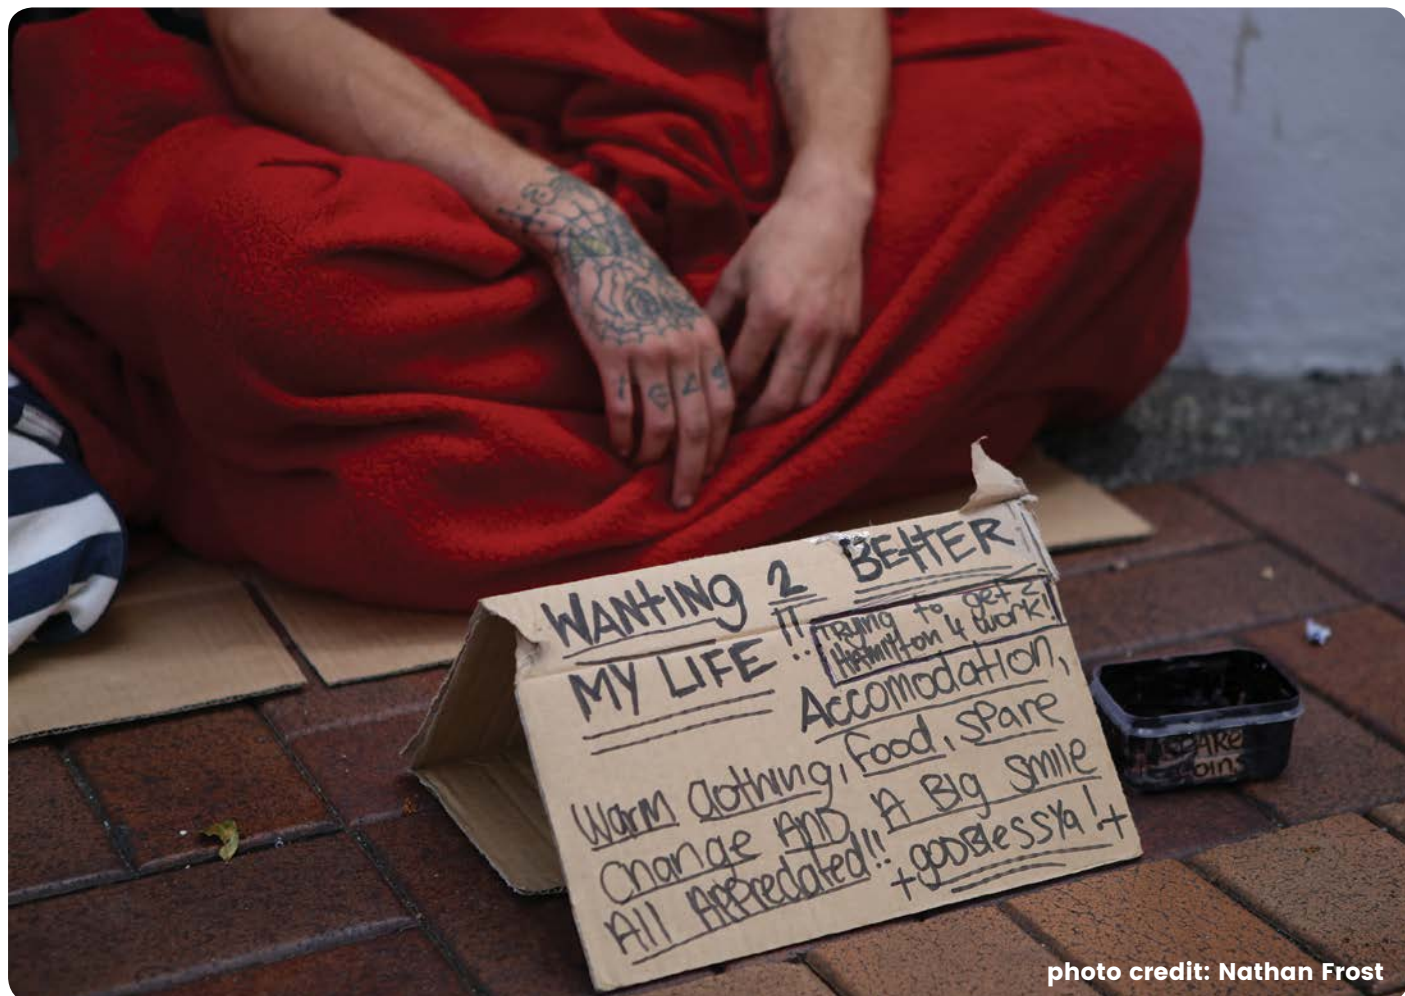 WANTING 2 BETTER
MY LIFE !!
TRYING to get 2
HAMILTON 4 WORK!
Accomodation,
Warm clothing, food, spare
change AND A BIG smile
All APPreciated!! +GODBlessYa!+
SPARE
coins
photo credit: Nathan Frost